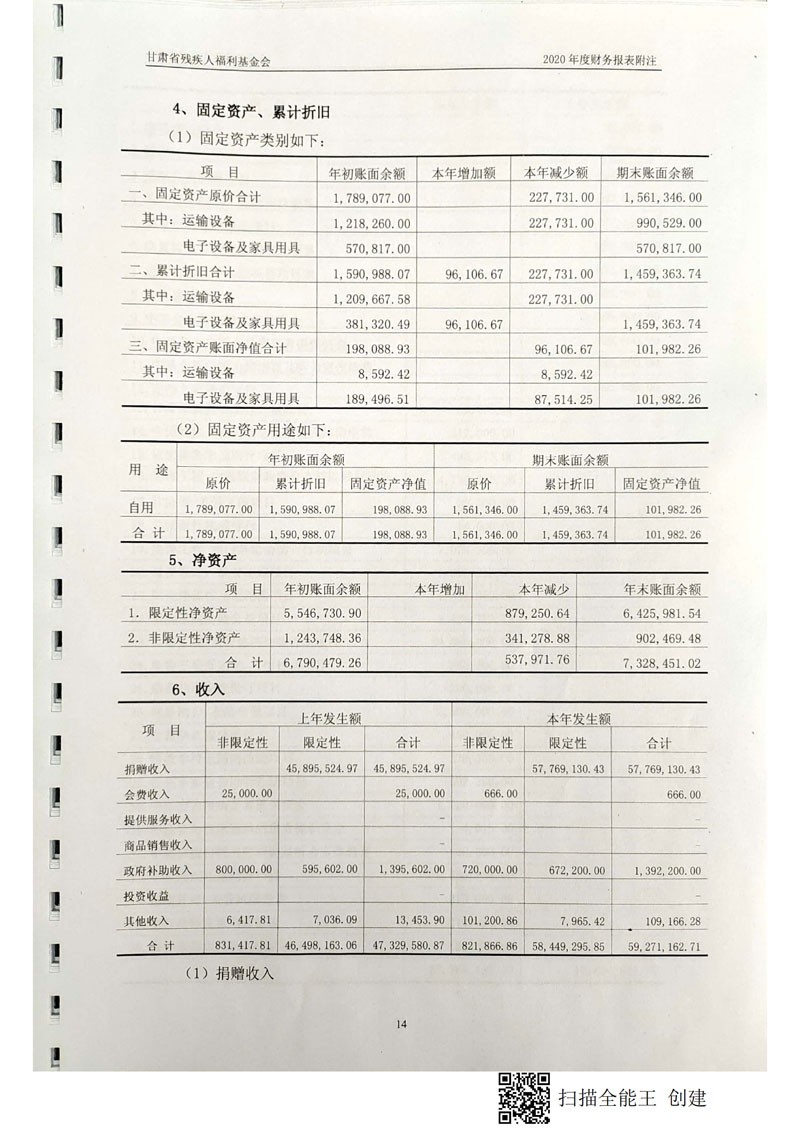 甘肃省残疾人福利基金会 2020 年度财务报表附注
4、固定资产、累计折旧
（1）固定资产类别如下：
项 目 年初账面余额 本年增加额 本年减少额 期末账面余额
一、固定资产原价合计 1,789,077.00 227,731.00 1,561,346.00
其中：运输设备 1,218,260.00 227,731.00 990,529.00
电子设备及家具用具 570,817.00 570,817.00
二、累计折旧合计 1,590,988.07 96,106.67 227,731.00 1,459,363.74
其中：运输设备 1,209,667.58 227,731.00
电子设备及家具用具 381,320.49 96,106.67 1,459,363.74
三、固定资产账面净值合计 198,088.93 96,106.67 101,982.26
其中：运输设备 8,592.42 8,592.42
电子设备及家具用具 189,496.51 87,514.25 101,982.26
（2）固定资产用途如下：
用 途 年初账面余额 期末账面余额
原价 累计折旧 固定资产净值 原价 累计折旧 固定资产净值
自用 1,789,077.00 1,590,988.07 198,088.93 1,561,346.00 1,459,363.74 101,982.26
合 计 1,789,077.00 1,590,988.07 198,088.93 1,561,346.00 1,459,363.74 101,982.26
5、净资产
项 目 年初账面余额 本年增加 本年减少 年末账面余额
1. 限定性净资产 5,546,730.90 879,250.64 6,425,981.54
2. 非限定性净资产 1,243,748.36 341,278.88 902,469.48
合 计 6,790,479.26 537,971.76 7,328,451.02
6、收入
项 目 上年发生额 本年发生额
非限定性 限定性 合计 非限定性 限定性 合计
捐赠收入 45,895,524.97 45,895,524.97 57,769,130.43 57,769,130.43
会费收入 25,000.00 25,000.00 666.00 666.00
提供服务收入 - -
商品销售收入 - -
政府补助收入 800,000.00 595,602.00 1,395,602.00 720,000.00 672,200.00 1,392,200.00
投资收益 - -
其他收入 6,417.81 7,036.09 13,453.90 101,200.86 7,965.42 109,166.28
合 计 831,417.81 46,498,163.06 47,329,580.87 821,866.86 58,449,295.85 59,271,162.71
（1）捐赠收入
14
扫描全能王 创建